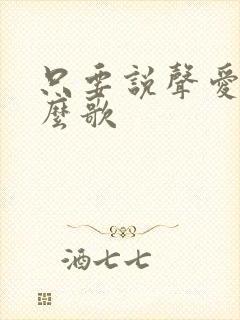 只要説聲愛
麼歌
酒七七